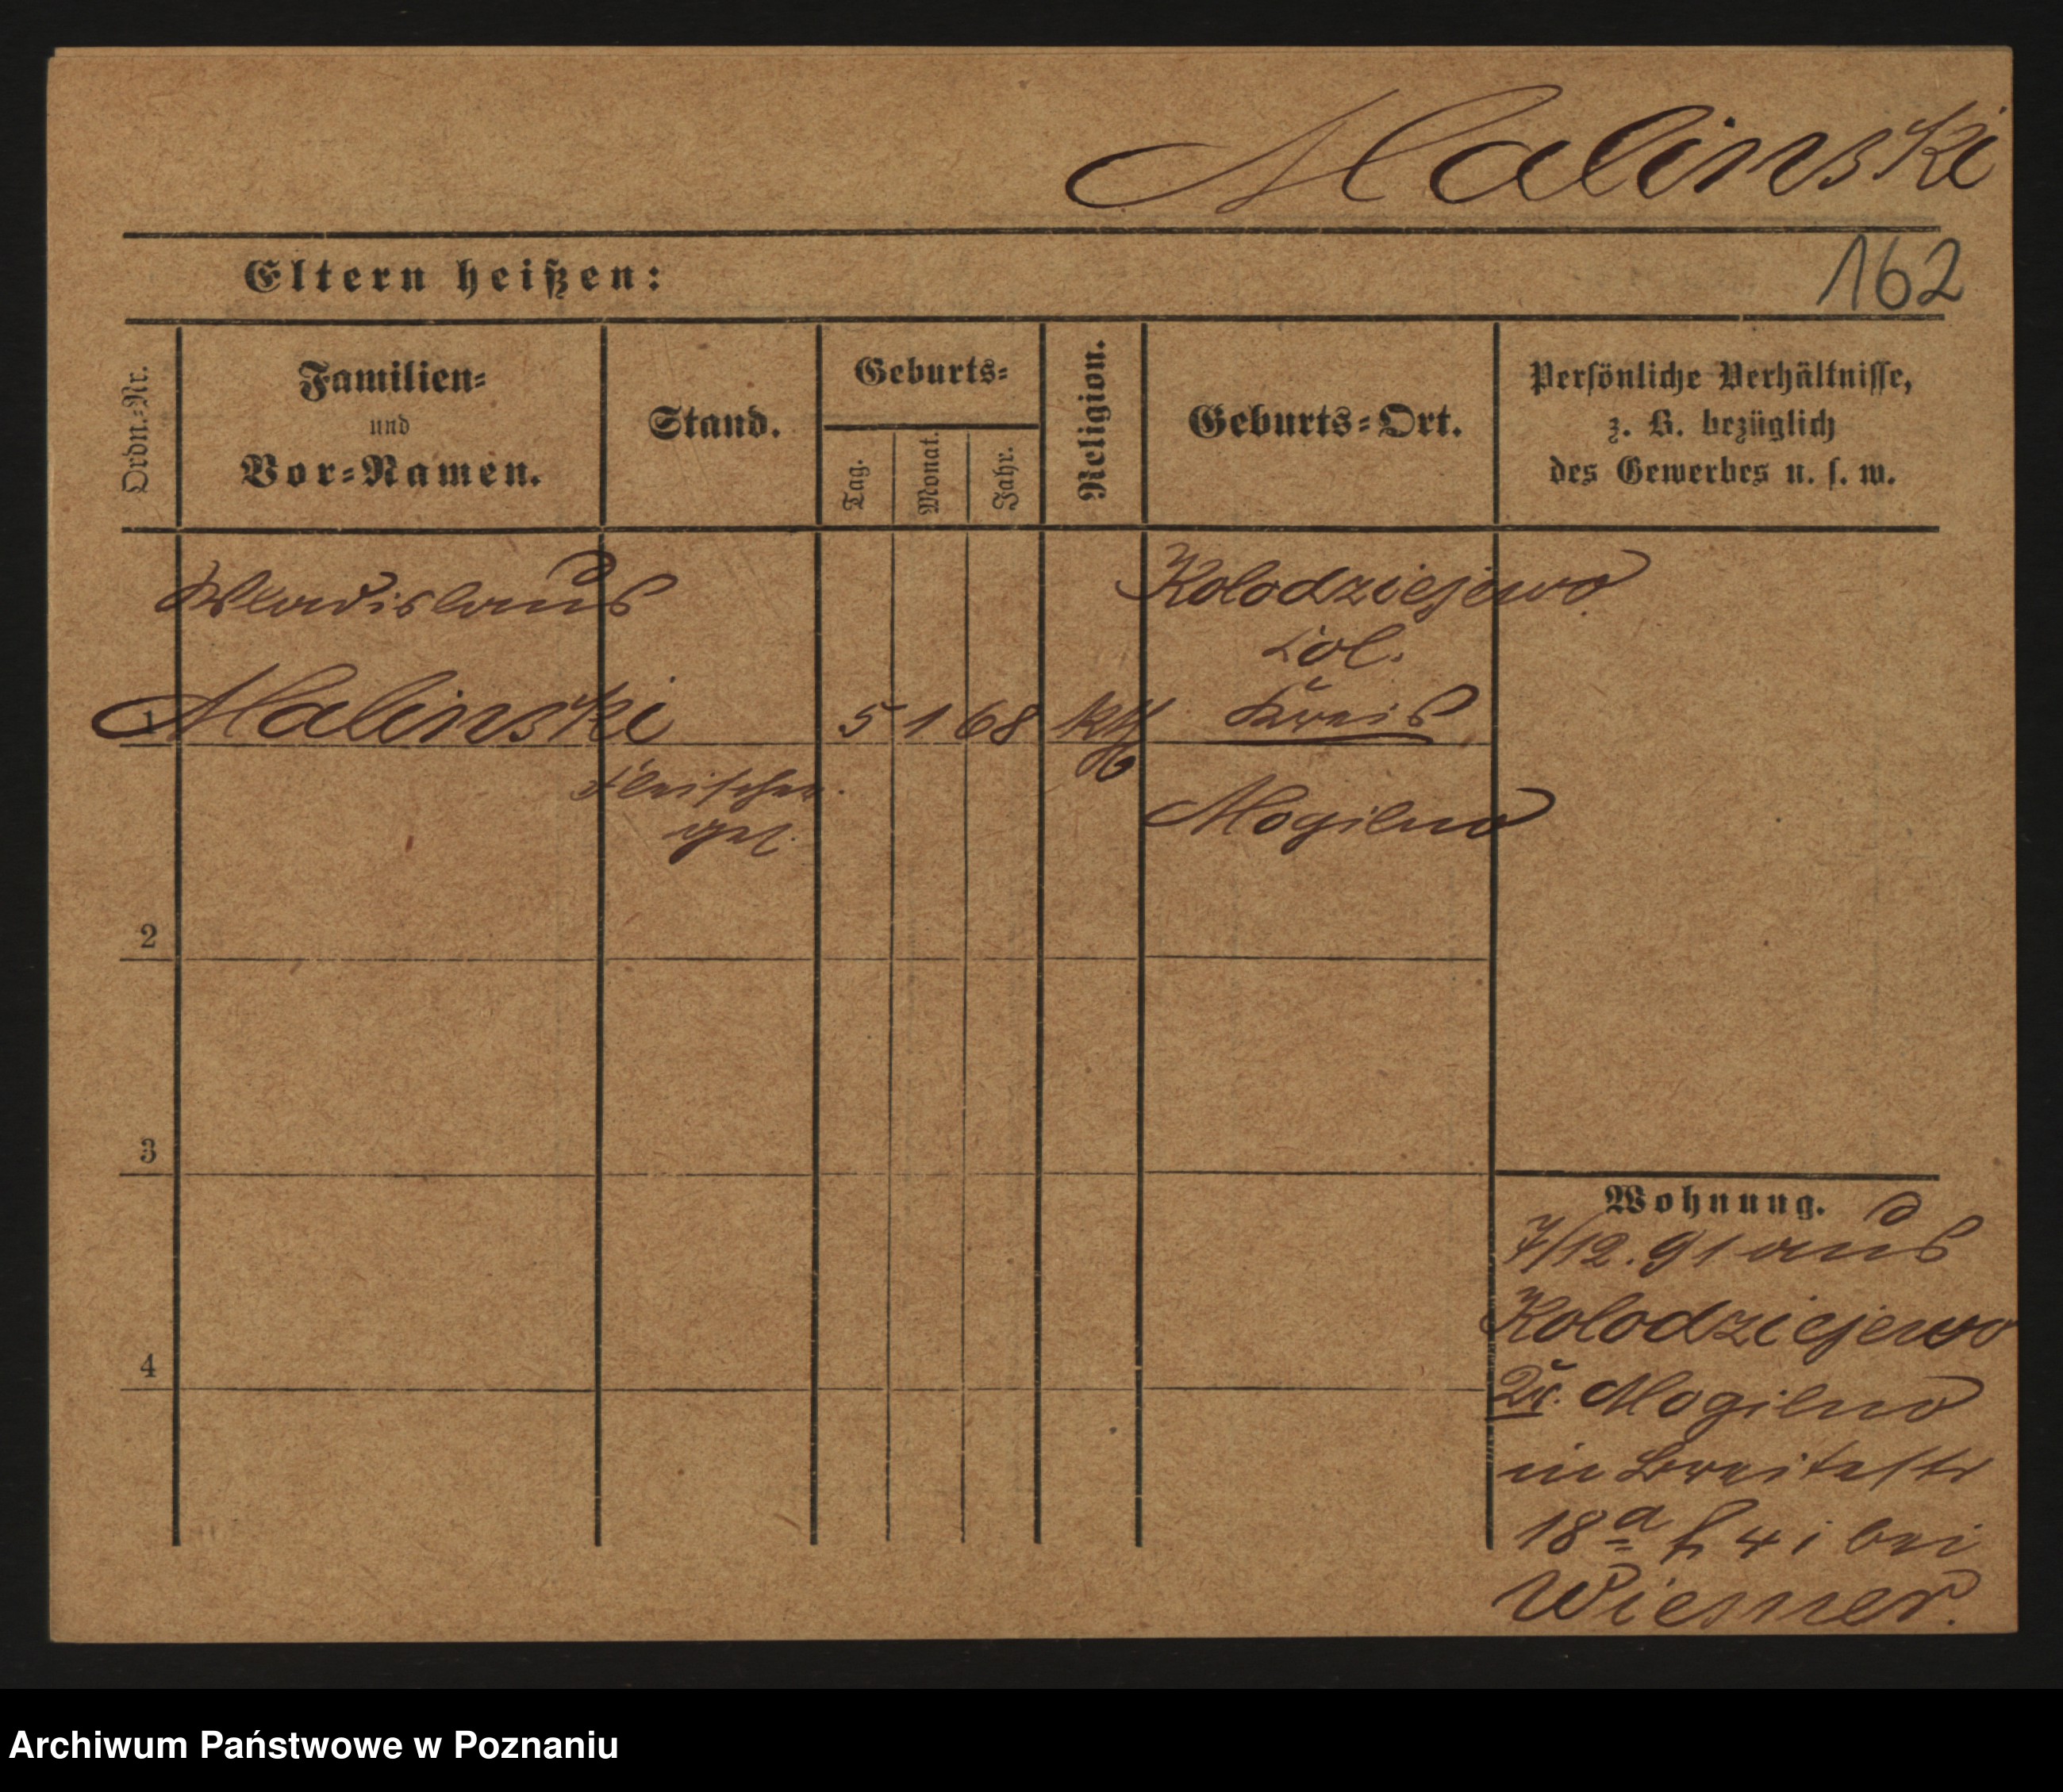 Malinski
162
Eltern heißen:
Ordn.-Nr.
Familien-
und
Vor-Namen.
Stand.
Geburts-
Tag.
Monat.
Jahr.
Religion.
Geburts-Ort.
Persönliche Verhältnisse,
z. B. bezüglich
des Gewerbes u. s. w.
Wladislaus
Kolodziejewo
1 Malinski 5 1 68 kth Kreis
Fleischer
ges.
Mogilno
2
3
4
Wohnung.
7/12. 91 aus
Kolodziejewo
Kr. Mogilno
in Breitestr
18a h 4 i bei
Wiesner.
Archiwum Państwowe w Poznaniu